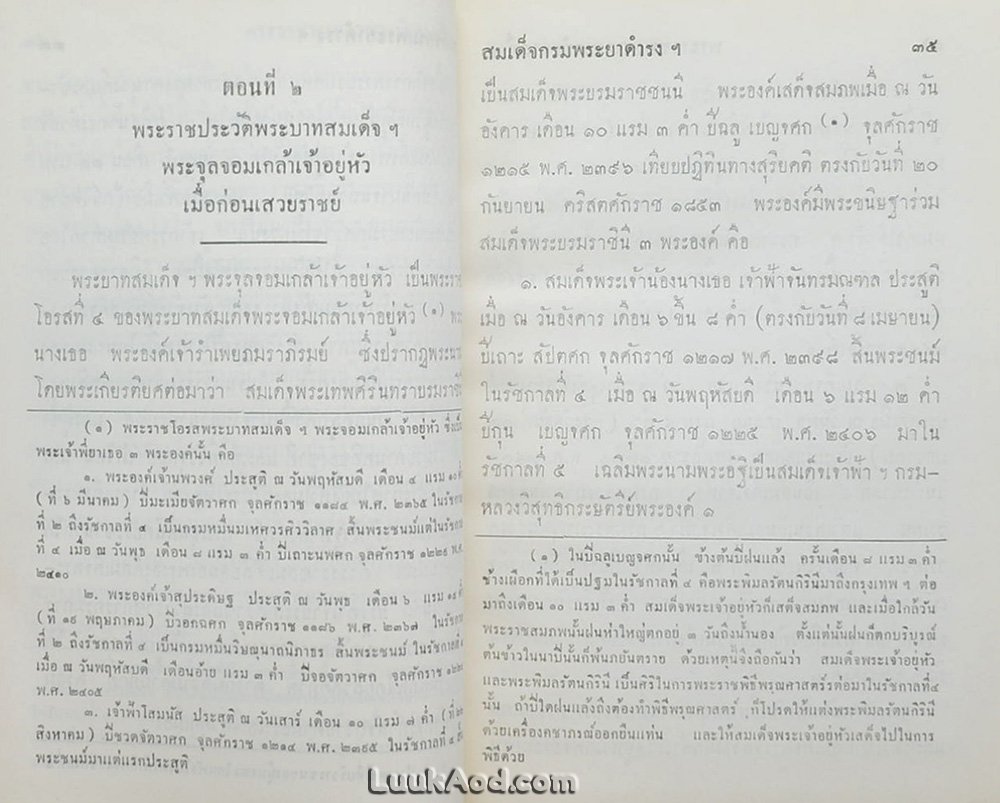 ตอนที่ ๒
พระราชประวัติพระบาทสมเด็จ ฯ
พระจุลจอมเกล้าเจ้าอยู่หัว
เมื่อก่อนเสวยราชย์
พระบาทสมเด็จ ฯ พระจุลจอมเกล้าเจ้าอยู่หัว เป็นพระรา
โอรสที่ ๔ ของพระบาทสมเด็จพระจอมเกล้าเจ้าอยู่หัว (๑)
นางเธอ พระองค์เจ้ารำเพยภมราภิรมย์ ซึ่งปรากฏพระนา
โดยพระเกียรติยศต่อมาว่า สมเด็จพระเทพศิรินทราบรมราชิ
(๑) พระราชโอรสพระบาทสมเด็จ ฯ พระจอมเกล้าเจ้าอยู่หัว ซึ่งเป็น
พระเจ้าพี่ยาเธอ ๓ พระองค์นั้น คือ
๑. พระองค์เจ้านพวงศ์ ประสูติ ณ วันพฤหัสบดี เดือน ๔ แรม
( ที่ ๖ มีนาคม ) ปีมะเมียจัตวาศก จุลศักราช ๑๑๘๔ พ.ศ. ๒๓๖๕ ในรัชกา
ที่ ๒ ถึงรัชกาลที่ ๔ เป็นกรมหมื่นมเหศวรศิววิลาศ สิ้นพระชนม์แต่ในรัชกา
ที่ ๔ เมื่อ ณ วันพุธ เดือน ๘ แรม ๓ ค่ำ ปีเถาะนพศก จุลศักราช ๑๒๒๙ พ.ศ.
๒๔๑๐
๒. พระองค์เจ้าสุประดิษฐ ประสูติ ณ วันพุธ เดือน ๖ แรม
(ที่ ๑๙ พฤษภาคม) ปีวอกฉศก จุลศักราช ๑๑๘๖ พ.ศ. ๒๓๖๗ ในรัชกา
ที่ ๒ ถึงรัชกาลที่ ๔ เป็นกรมหมื่นวิษณุนาถนิภาธร สิ้นพระชนม์ ในรัชกาลที่ ๔
เมื่อ ณ วันพฤหัสบดี เดือนอ้าย แรม ๓ ค่ำ ปีจอจัตวาศก จุลศักราช
พ.ศ. ๒๔๐๕
๓. เจ้าฟ้าโสมนัส ประสูติ ณ วันเสาร์ เดือน ๑๐ แรม ๗ ค่ำ
สิงหาคม) ปีชวดจัตวาศก จุลศักราช ๑๒๑๔ พ.ศ. ๒๓๙๕ ในรัชกาลที่ ๔ สิ้น
พระชนม์มาแต่แรกประสูติ
สมเด็จกรมพระยาดำรง ฯ ๓๕
เป็นสมเด็จพระบรมราชชนนี พระองค์เสด็จสมภพเมื่อ ณ วัน
อังคาร เดือน ๑๐ แรม ๓ ค่ำ ปีฉลู เบญจศก (๑) จุลศักราช
๑๒๑๕ พ.ศ. ๒๓๙๖ เทียบปฏิทินทางสุริยคติ ตรงกับวันที่ ๒๐
กันยายน คริสตศักราช ๑๘๕๓ พระองค์มีพระขนิษฐาร่วม
สมเด็จพระบรมราชินี ๓ พระองค์ คือ
๑. สมเด็จพระเจ้าน้องนางเธอ เจ้าฟ้าจันทรมณฑล ประสูติ
เมื่อ ณ วันอังคาร เดือน ๖ ขึ้น ๘ ค่ำ (ตรงกับวันที่ ๘ เมษายน)
ปีเถาะ สัปตศก จุลศักราช ๑๒๑๗ พ.ศ. ๒๓๙๘ สิ้นพระชนม์
ในรัชกาลที่ ๔ เมื่อ ณ วันพฤหัสบดี เดือน ๖ แรม ๑๒ ค่ำ
ปีกุน เบญจศก จุลศักราช ๑๒๒๕ พ.ศ. ๒๔๐๖ มาใน
รัชกาลที่ ๕ เฉลิมพระนามพระอัฐิเป็นสมเด็จเจ้าฟ้า ฯ กรม-
หลวงวิสุทธิกระษัตรีย์พระองค์ ๑
(๑) ในปีฉลูเบญจศกนั้น ข้างต้นปีฝนแล้ง ครั้นเดือน ๘ แรม ๓ ค่ำ
ช้างเผือกที่ได้เป็นปฐมในรัชกาลที่ ๔ คือพระพิมลรัตนกิรินีมาถึงกรุงเทพ ฯ ต่อ
มาถึงเดือน ๑๐ แรม ๓ ค่ำ สมเด็จพระเจ้าอยู่หัวก็เสด็จสมภพ และเมื่อใกล้วัน
พระราชสมภพนั้นฝนห่าใหญ่ตกอยู่ ๓ วันถึงน้ำนอง ตั้งแต่นั้นฝนก็ตกบริบูรณ์
ต้นข้าวในนาปีนั้นก็พ้นภยันตราย ด้วยเหตุนี้จึงถือกันว่า สมเด็จพระเจ้าอยู่หัว
และพระพิมลรัตนกิรินี เป็นศิริในการพระราชพิธีพรุณศาสตร์ต่อมาในรัชกาลที่๔
นั้น ถ้าปีใดฝนแล้งถึงต้องทำพิธีพรุณศาสตร์ ก็โปรดให้แต่งพระพิมลรัตนกิรินี
ด้วยเครื่องคชาภรณ์ออกยืนแท่น และให้สมเด็จพระเจ้าอยู่หัวเสด็จไปในการ
พิธีด้วย
LuukAod.com